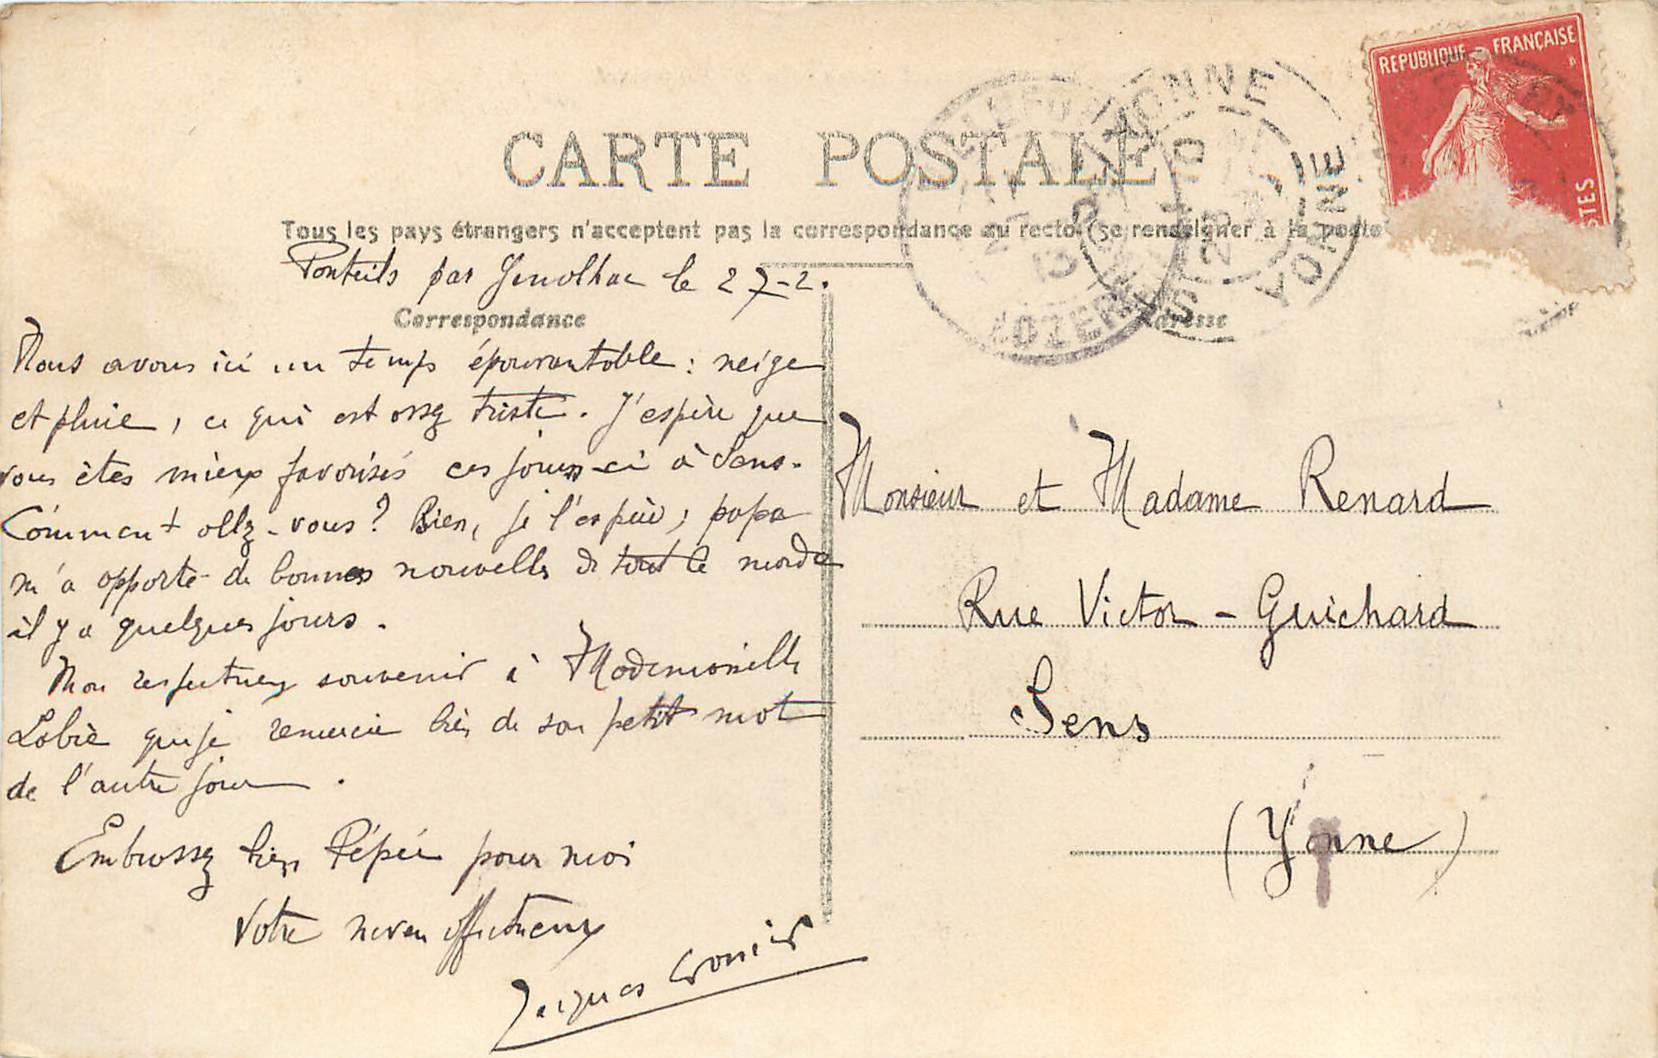 REPUBLIQUE FRANÇAISE
CARTE POSTALE
Tous les pays étrangers n'acceptent pas la correspondance au recto (se renseigner à la poste
Ponteils par Genolhac le 27-2.
Correspondance
Adresse
Nous avons ici un temps épouvantable : neige
et pluie, ce qui est assez triste. J'espère que
vous êtes mieux favorisés ces jours-ci à Sens.
Comment allez-vous ? Bien, je l'espère ; papa
m'a apporté de bonnes nouvelles de tout le monde
il y a quelques jours.
Mon respectueux souvenir à Mademoiselle
que je remercie bien de son petit mot
de l'autre jour.
Embrassez bien Pépée pour moi
Votre neveu affectueux
Jacques
Monsieur et Madame Renard
Rue Victor-Guichard
Sens
(Yonne)
YONNE
YONNE
LOZERE